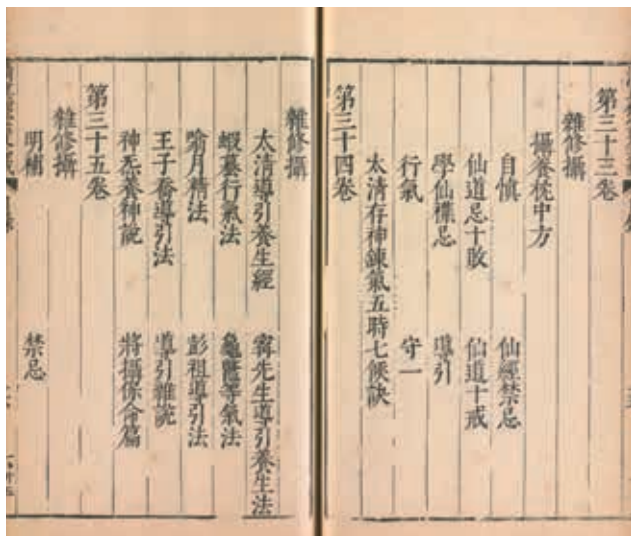 第三十三卷
雜修攝
攝養枕中方
自慎 仙經禁忌
仙道忌十敗 仙道十戒
學仙雜忌 導引
行氣 守一
太清存神鍊氣五時七候訣
第三十四卷
雜修攝
太清導引養生經 甯先生導引養生法
蝦蟇行氣法 龜鱉等氣法
喻月精法 彭祖導引法
王子喬導引法 導引雜說
神炁養神說 將攝保命篇
第三十五卷
雜修攝
明補 禁忌